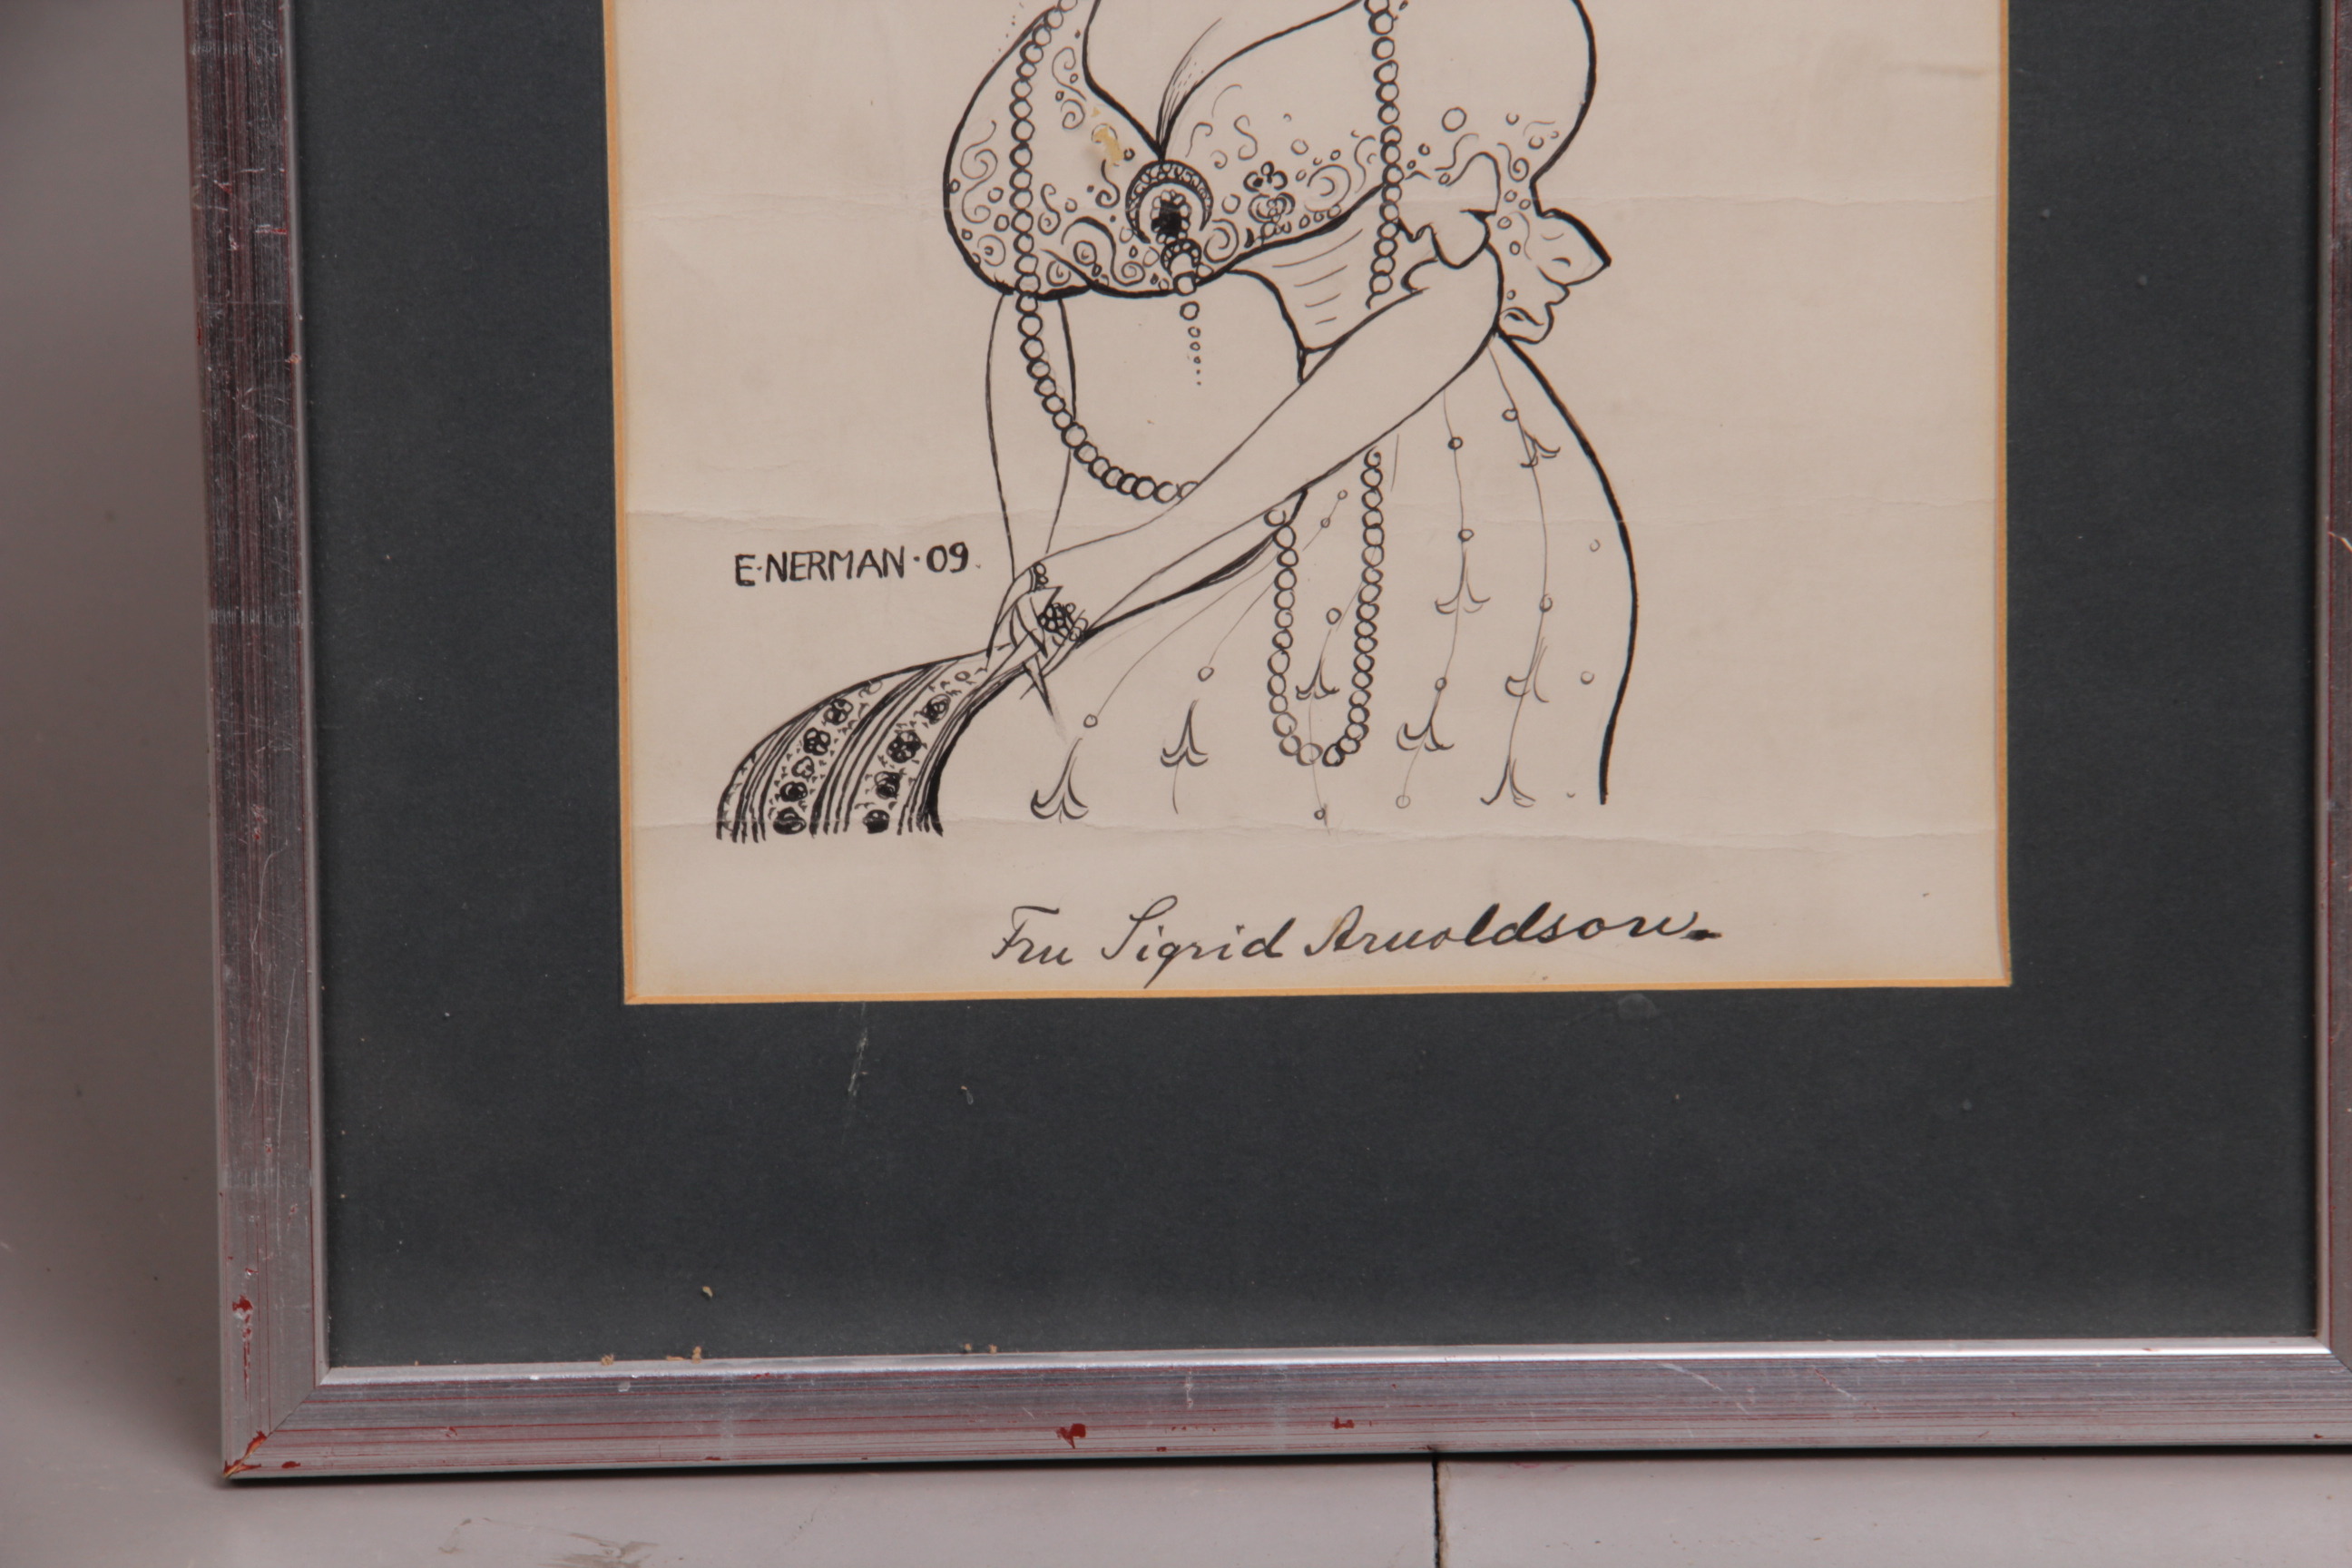 E·NERMAN·09.
Fru Sigrid Arnoldson.